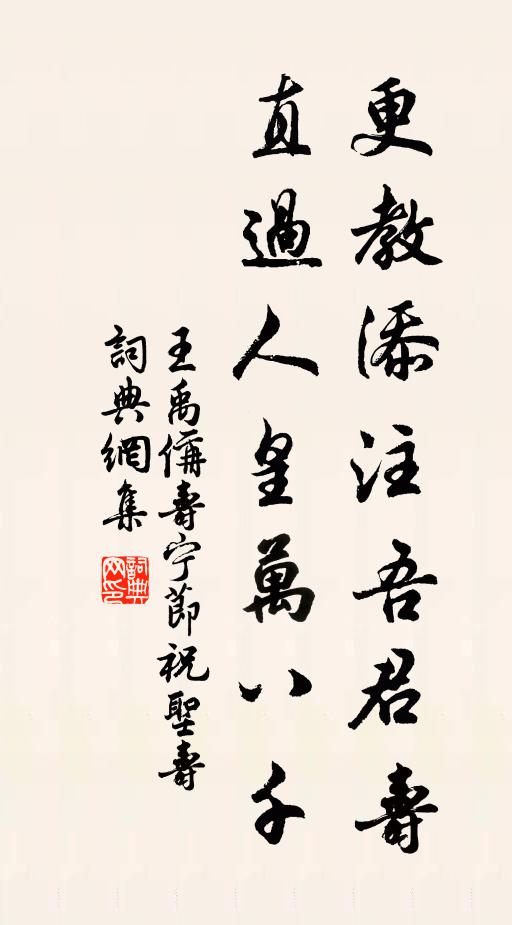 更教添注吾君壽
直過人皇萬八千
王禹偁壽宁節祝聖壽
詞典網集
詞典網印